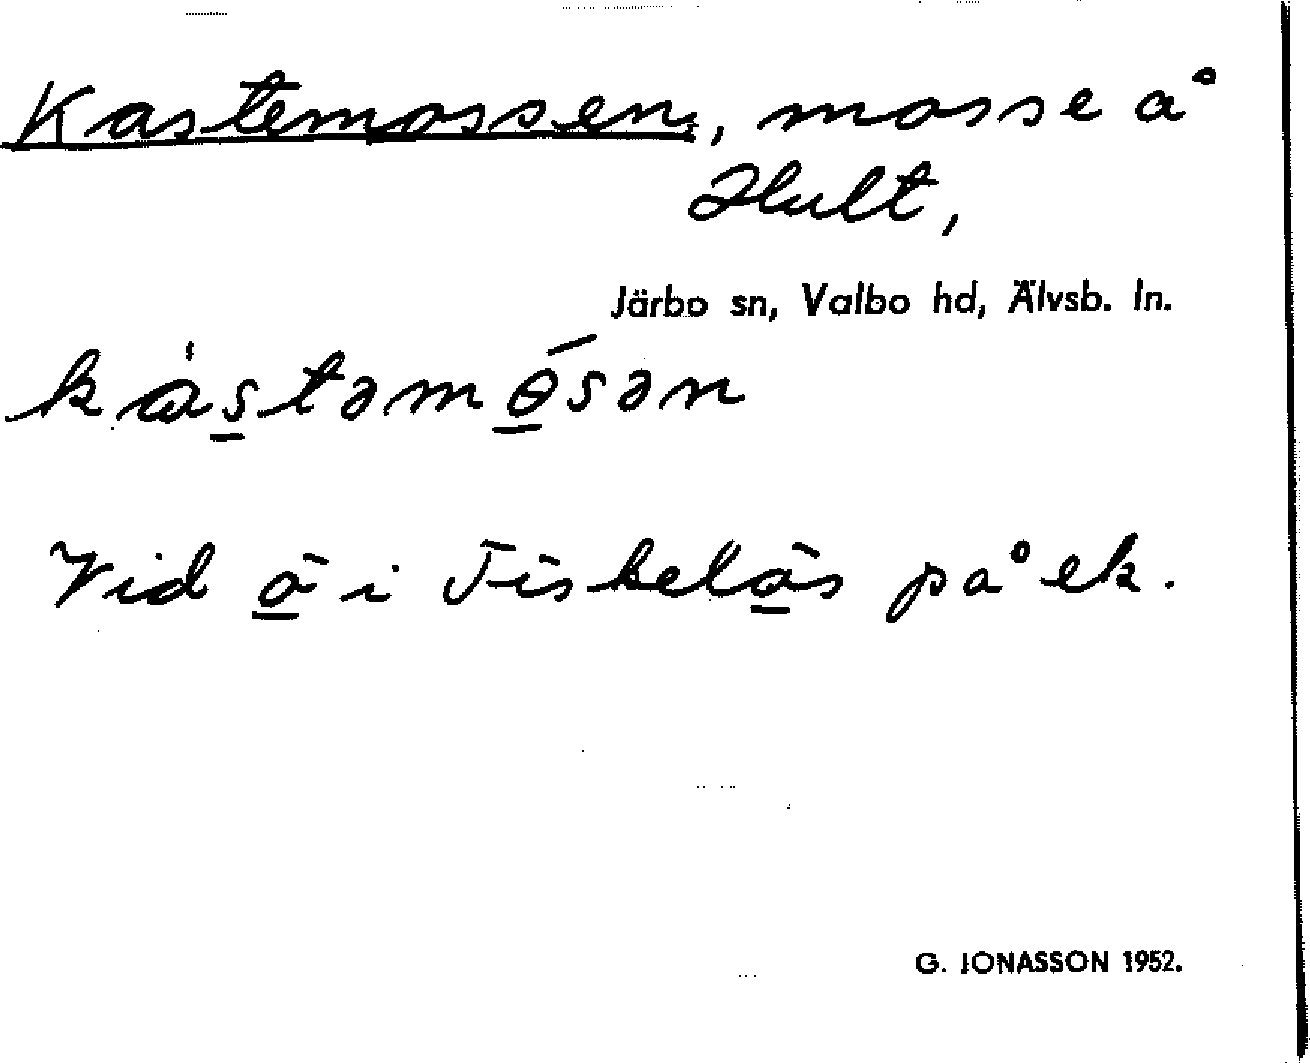 Kastemossen, mosse å
Hult,
Järbo sn, Valbo hd, Älvsb. ln.
kástəmɵ́sən
Vid ä i Fiskeläs på ek.
G. JONASSON 1952.